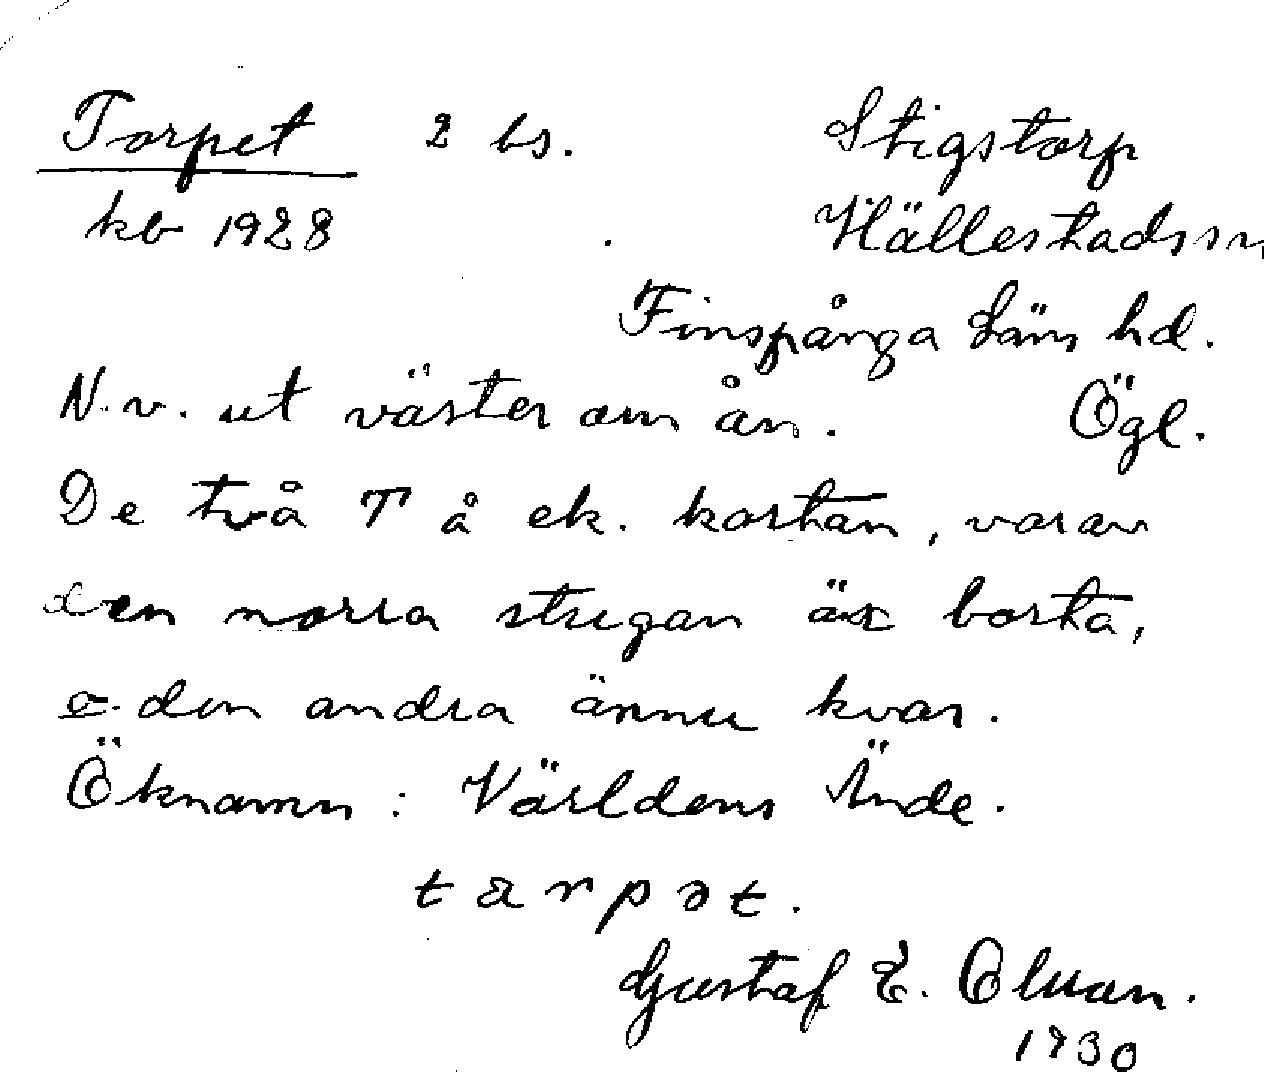 Torpet 2 bs. Stigstorp
kb 1928 Hällestads sn
Finspånga läns hd.
N.v. ut väster om ån. Ögl.
De två T å ek. kartan, varav
den norra stugan är borta,
o. den andra ännu kvar.
Öknamn: Världens Ände.
tarpət.
Gustaf E.
1930